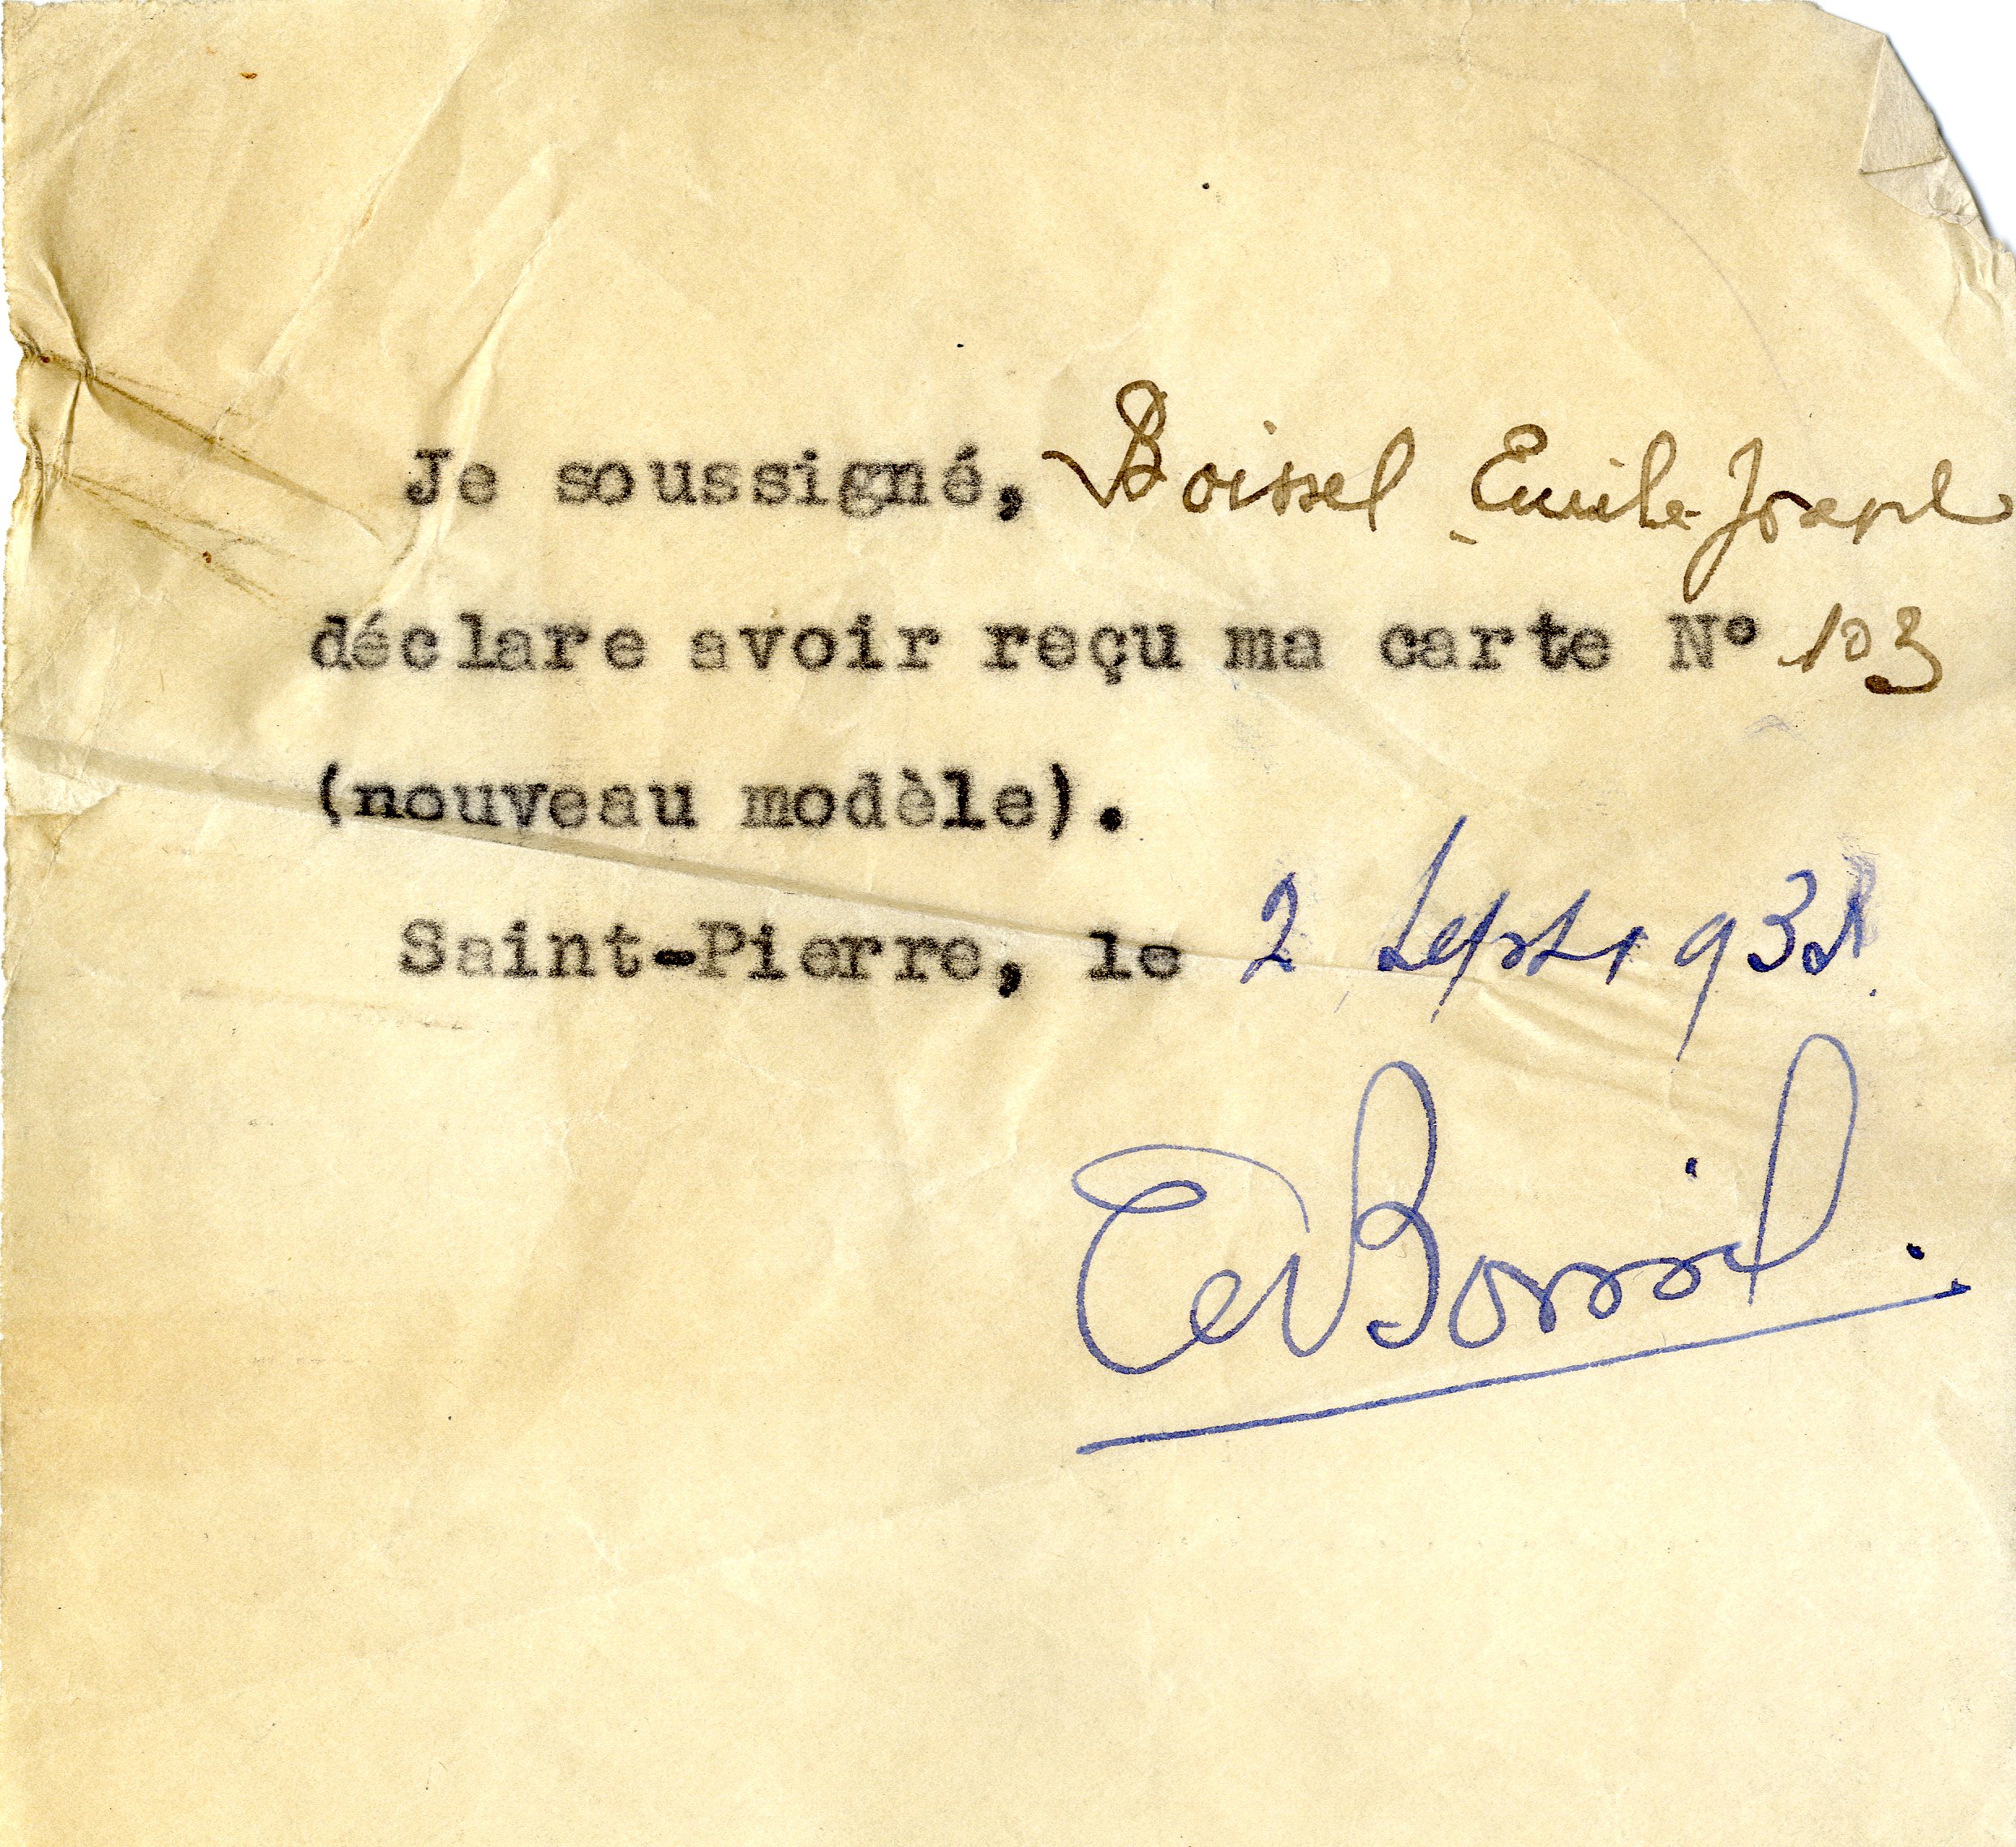 Je soussigné, Boissel Emile Joseph
déclare avoir reçu ma carte N° 103
(nouveau modèle).
Saint-Pierre, le 2 Sept 1938.
E Boissel.